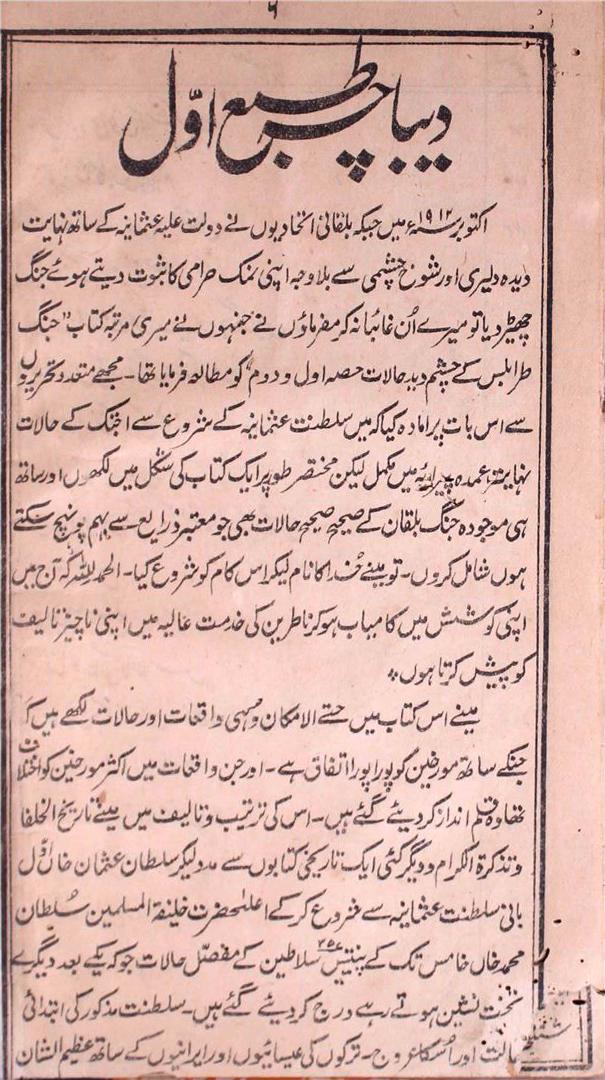 ۶
دیباچہ طبع اوّل
اکتوبر سنہ ۱۹۱۲ء میں جبکہ بلقانی اتحادیوں نے دولت علیہ عثمانیہ کے ساتھ نہایت
دیدہ دلیری اور شوخ چشمی سے بلاوجہ اپنی نمک حرامی کا ثبوت دیتے ہوئے جنگ
چھیڑ دیا تو میرے اُن غائبانہ کرمفرماؤں نے جنہوں نے میری مرتبہ کتاب "جنگ
طرابلس کے چشم دید حالات حصہ اول و دوم" کو مطالعہ فرمایا تھا۔ مجھے متعدد تحریروں
سے اس بات پر امادہ کیا کہ میں سلطنت عثمانیہ کے شروع سے اجتک کے حالات
نہایت عمدہ پیرائہ میں مکمل لیکن مختصر طور پر ایک کتاب کی شکل میں لکھوں اور ساتھ
ہی موجودہ جنگ بلقان کے صحیح صحیح حالات بھی جو معتبر ذرایع سے بہم پہونچ سکتے
ہوں شامل کروں۔ تو مینے خُدا کا نام لیکر اس کام کو شروع کیا۔ الحمد للہ کہ آج میں
اپنی کوشش میں کامیاب ہو کر ناظرین کی خدمت عالیہ میں اپنی ناچیز تالیف
کو پیش کرتا ہوں۔
مینے اس کتاب میں حتے الامکان وہی واقعات اور حالات لکھے ہیں کہ
جنکے ساتھ مورخین کو پورا پورا اتفاق ہے۔ اور جن واقعات میں اکثر مورخین کو اختلاف
تھا وہ قلم انداز کر دیئے گئے ہیں۔ اس کی ترتیب و تالیف میں مینے تاریخ الخلفا
و تذکرۃ الکرام و دیگر کئی ایک تاریخی کتابوں سے مدد لیکر سلطان عثمان خاں اول
بانی سلطنت عثمانیہ سے شروع کر کے اعلےٰحضرت خلیفۃ المسلمین سُلطان
محمد خاں خامس تک کے پنتیس سلاطین کے مفصّل حالات جو کہ یکے بعد دیگرے
تخت نشین ہوتے رہے درج کر دیئے گئے ہیں۔ سلطنت مذکور کی ابتدائی
حالت اور اُسکا عروج۔ ترکوں کی عیسائیوں اور ایرانیوں کے ساتھ عظیم الشان